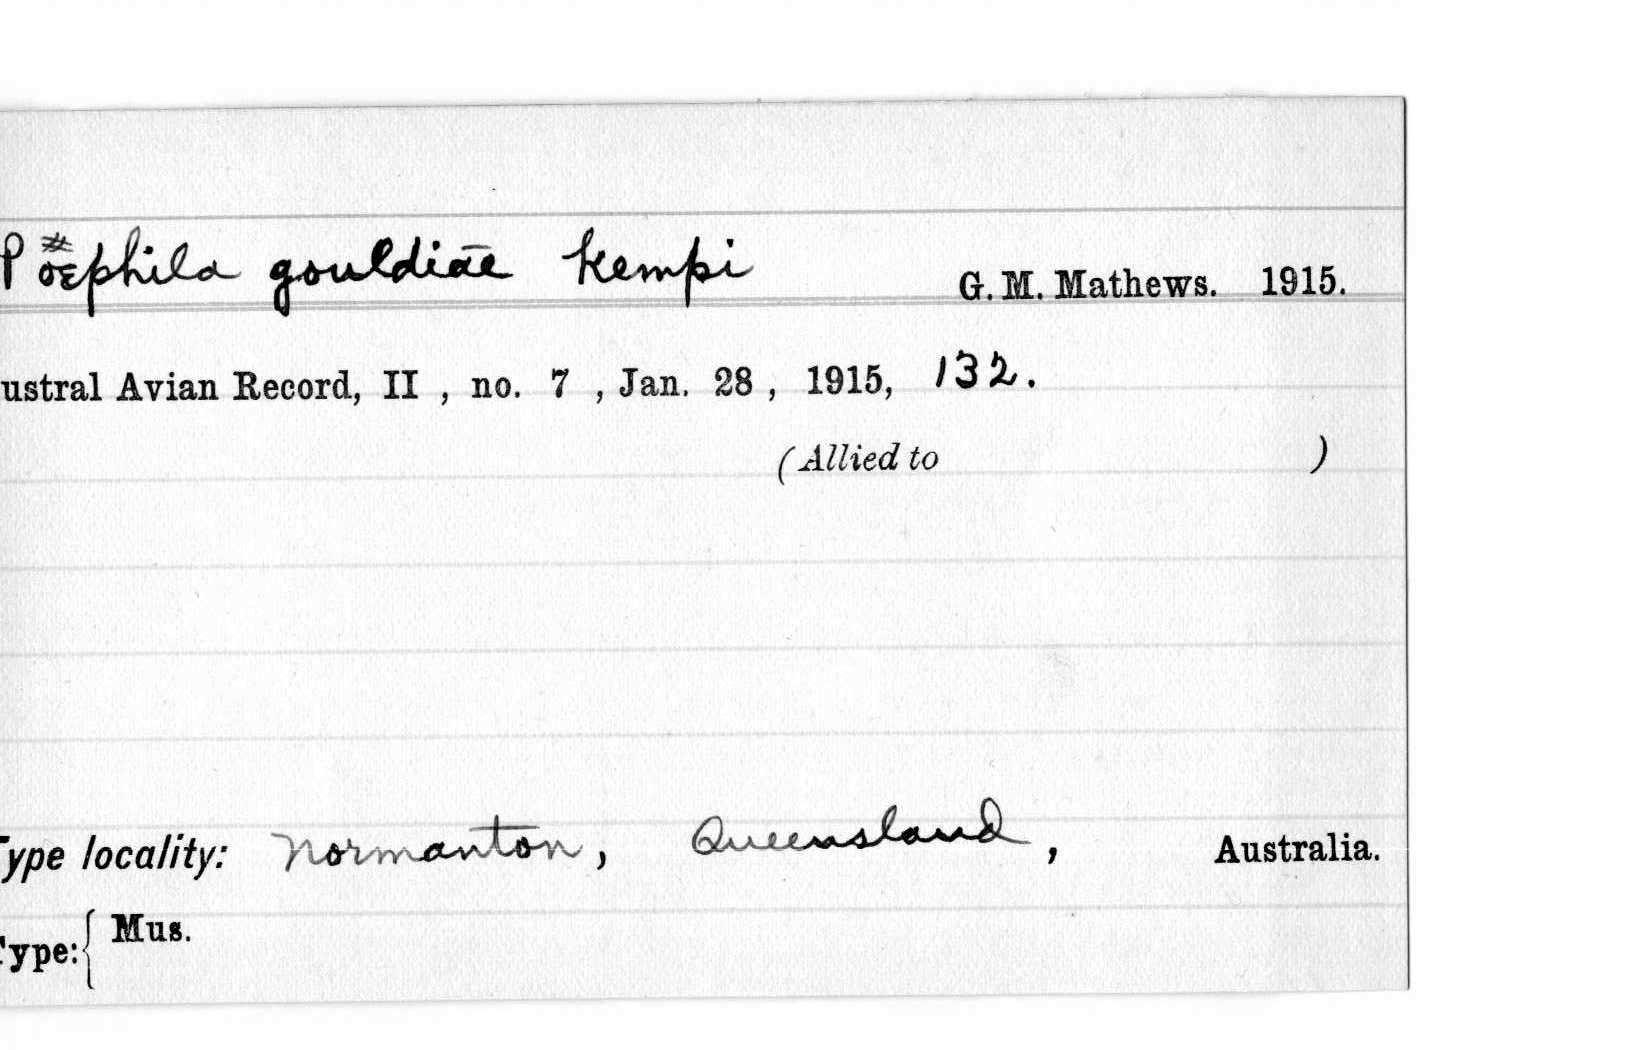 Poephila gouldiae kempi G. M. Mathews. 1915.
ustral Avian Record, II , no. 7 , Jan. 28 , 1915, 132.
(Allied to )
Type locality: Normanton, Queensland, Australia.
Type: { Mus.